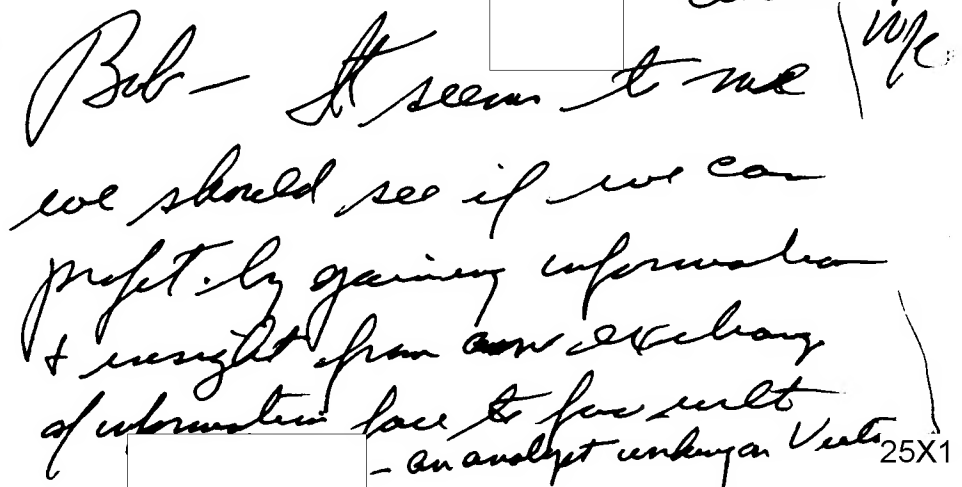 Bob – It seems to me
we should see if we can
profit by gaining information
& insight from an exchange
of information face to face with
– an analyst working on
25X1